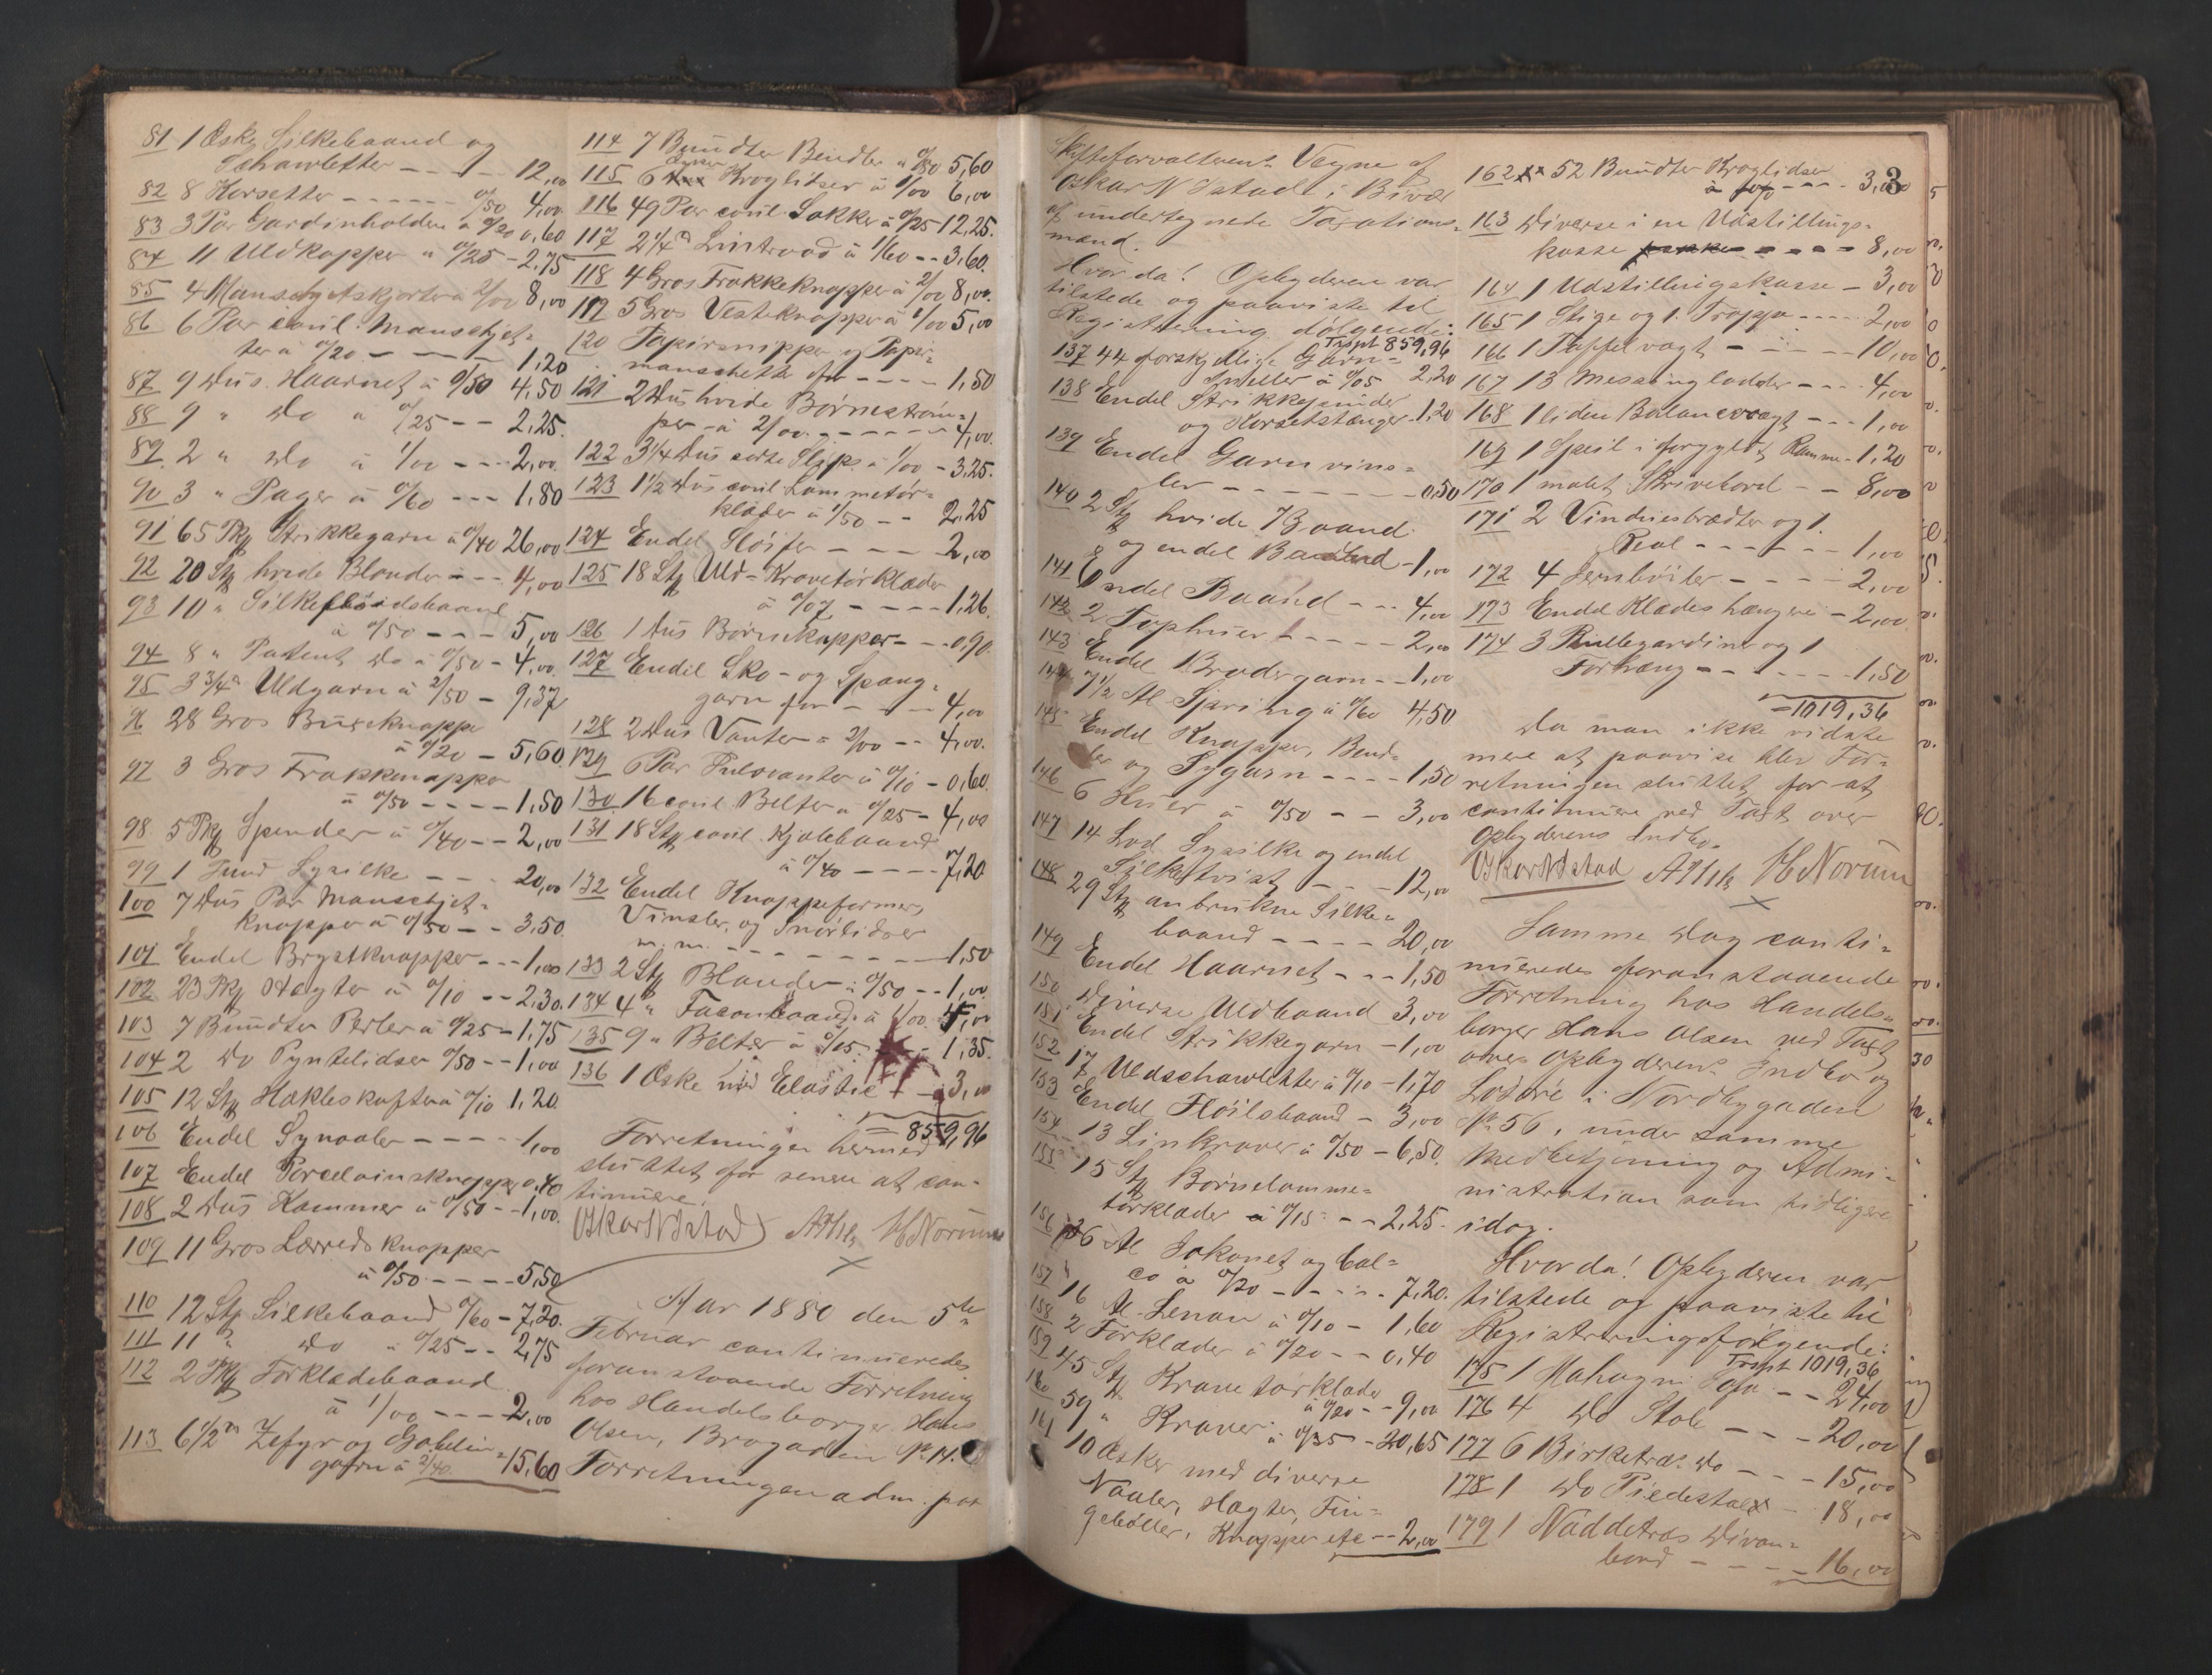 81 1 Æske Silkebaand og
Schawletter - - - 12,00
82 8 Korsetter - - - - - - 0/50 4,00
83 3 Par Gardinholdere à 0/20 0,60
84 11 Uldkapper à 0/25 - 2,75
85 4 Manschetskjorter à 2/00 8,00
86 6 Par coul. Manschjet-
ter à 0/20 - - - - 1,20
87 9 Dus. Haarnet à 0/50 4,50
88 9 " Do à 0/25 - - 2,25.
89 2 " Do à 1/00 - - - 2,00
90 3 " Pager à 0/60 - - - 1,80
91 65 Pk Strikkegarn à 0/40 26,00
92 20 Stk hvide Blonder - - - 4,00
93 10 " Silkefløidsbaand
à 0/50 - - - 5,00
94 8 " Patent Do à 0/50 - 4,00
95 3 3/4 Uldgarn à 2/50 - 9,37
96 28 Gros Buxeknapper
à 0/20 - 5,60
97 3 Gros Frakknapper
à 0/50 - - - - 1,50
98 5 Pk Spender à 0/40 - - 2,00
99 1 Pund Sysilke - - - 20,00
100 7 Dus Par Manschjet-
knapper à 0/50 - - 3,50
101 Endel Brystknapper - - - 1,00
102 23 Pk Hægter à 0/10 - - 2,30.
103 7 Bundter Perler à 0/25 - 1,75
104 2 Do Pyntelidser 0/50 - - 1,00
105 12 Stk Hækleskafter à 0/10 1,20.
106 Endel Synaaler - - - - 1,00
107 Endel Porcelainsknapper 0,40
108 2 Dus Kammer à 0/50 - - 1,00.
109 11 Gros Lærredsknapper
à 0/50 - - - - 5,50
110 12 Stk Silkebaand 0/60 - 7,20.
111 11 " Do " 0/25 - - 2,75
112 2 Pk Forklædebaand
à 1/00 - - - 2,00
113 6 1/2 Zefyr og Gobelin
garn à 2/40. - 15,60
114 7 Bundter Bendler à 0/80 5,60
115 6 Kroglidser à 1/00 6,00
116 49 Par coul. Sokker à 0/25 12,25.
117 2 1/4 Lintraad à 1/60 - - 3,60.
118 4 Gros Frakkeknapper à 2/00 8,00.
119 5 Gros Vesteknapper à 1/00 5,00
120 Papirsnipper og Papir-
manschetter for - - - - 1,50
121 2 Dus hvide Børnestrøm-
per - à 2/00 - - - - - - 4,00.
122 3 1/4 Dus sorte Slips à 1/00 - 3,25.
123 1 1/2 Dus coul Lommetør-
klæder à 1/50 - - 2,25
124 Endel Sløifer - - - - 2,00
125 18 Stk Uld-Kravetørklæder
à 0/07 - - - - 1,26.
126 1 Dus Børnekapper - - - 0,90.
127 Endel Sko- og Spang-
garn for - - - - 4,00
128 2 Dus Vanter - 2/00 - - 4,00.
129 6 Par Pulsvanter à 0/10 - 0,60.
130 16 coul. Belter à 0/25 - 4,00
131 18 Stk coul. Kjolebaand
à 0/40 - - - - 7,20
132 Endel Knappeformer,
Vinsler, og Snørlidser
m. m. - - - - - - - - 1,50
133 2 Stk Blonder à 0/50 - - 1,00
134 4 " Faconbaand à 1/00 4,00
135 9 " Belter à 0/15. - 1,35.
136 1 Æske med Elastic - - 3,00
= 859,96
Forretningen hermed
sluttet for senere at con-
tinuere.
Oskar NIstad HNorum
Aar 1880 den 5te
Februar continueredes
foranstaaende Forretning
hos Handelsborger Hans
Olsen, Brogaden No 14.
Forretningen adm. paa
Skifteforvalterens Vegne af
Oskar N Istad i Bivær
af undertegnede Taxations-
mænd.
Hvorda! Opbyderen var
tilstede og paaviste til
Registrering følgende:
Trspt 859,96
137 44 forskjellige Garn-
sneller à 0/05 2,20
138 Endel Strikkepinder
og Korsetstænger - 1,20
139 Endel Garnvins-
ler - - - - - - - - 0,50
140 2 Stk hvide Baand
og endel Baand - 1,00
141 Endel Baand - - - 4,00
142 2 Tophuer - - - - - 2,00
143 Endel Brodergarn - - 1,00
144 7 1/2 Al Sjæring à 0/60 4,50
145 Endel Knapper, Bend-
ler og Sygarn - - - - 1,50
146 6 Huer à 0/50 - - 3,00
147 14 Lod Sysilke og endel
Silketvist - - - 12,00
148 29 Stk anbrukne Silke-
baand - - - - 20,00
149 Endel Haarnet - - - 1,50
150 Diverse Uldbaand 3,00
151 Endel Strikkegarn - 1,00
152 17 Uldschawletter à 0/10 - 1,70
153 Endel Fløilsbaand - 3,00
154 13 Linkraver à 0/50 - 6,50.
155 15 Stk Børnelomme-
tørklæder à 0/15 - - 2,25.
156 36 Al Jakonet og Cal-
co à 0/20 - - - - 7,20.
157 16 Al. Lenon à 0/10 - 1,60
158 2 Forklæder à 0/20 - - 0,40
159 45 Stk Kravetørklæder
à 0/20 - - 9,00
160 59 " Kraver à 0/35 - 20,65
161 10 Æsker med diverse
Naaler, Hægter, Fin-
gebøller, Knapper etc - - 2,00
3
162 52 Bundter Kroglidser
- - - 3,00
163 Diverse i en Udstillings-
kasse - - - - 8,00
164 1 Udstillingskasse - 3,00
165 1 Stige og 1. Trappe - - - - 2,00
166 1 Taffelvægt - - - - - 10,00
167 13 Messinglodder - - - 4,00
168 1 liden Balancevægt - - - 1,00
169 1 Speil i forgyldt Ramme - 1,20
170 1 malet Skrivebord - - 8,00
171 2 Vinduesbrædter og 1.
Reol - - - - - - 1,00
172 4 Jernbøiler - - - - 2,00
173 Endel Klædeshængere - 2,00
174 3 Rullegardiner og 1
Forhæng - - - - - - 1,50
= 1019,36
Da man ikke vidste
mere at paavise blev For-
retningen sluttet for at
continuere ved Taxt over
Opbyderens Indbo.
Oskar NIstad HNorum
Samme Dag conti-
nueredes foranstaaende
Forretning hos Handels-
borger Hans Olsen ved Taxt
over Opbyderens Indbo og
Løsøre i Nordbygaden
No 56, under samme
Medbetjening og Admi-
nistration som tidligere
idag.
Hvorda! Opbyderen var
tilstede og paaviste til
Registrering følgende:
Trspt 1019,36
175 1 Mahogni Sofa - - 24,00
176 4 Do Stole - - - 20,00
177 6 Birketræs Do - - - 15,00
178 1 Do Piedestal - 18,00
179 1 Nøddetræs Divan-
bord - - - - 16,00